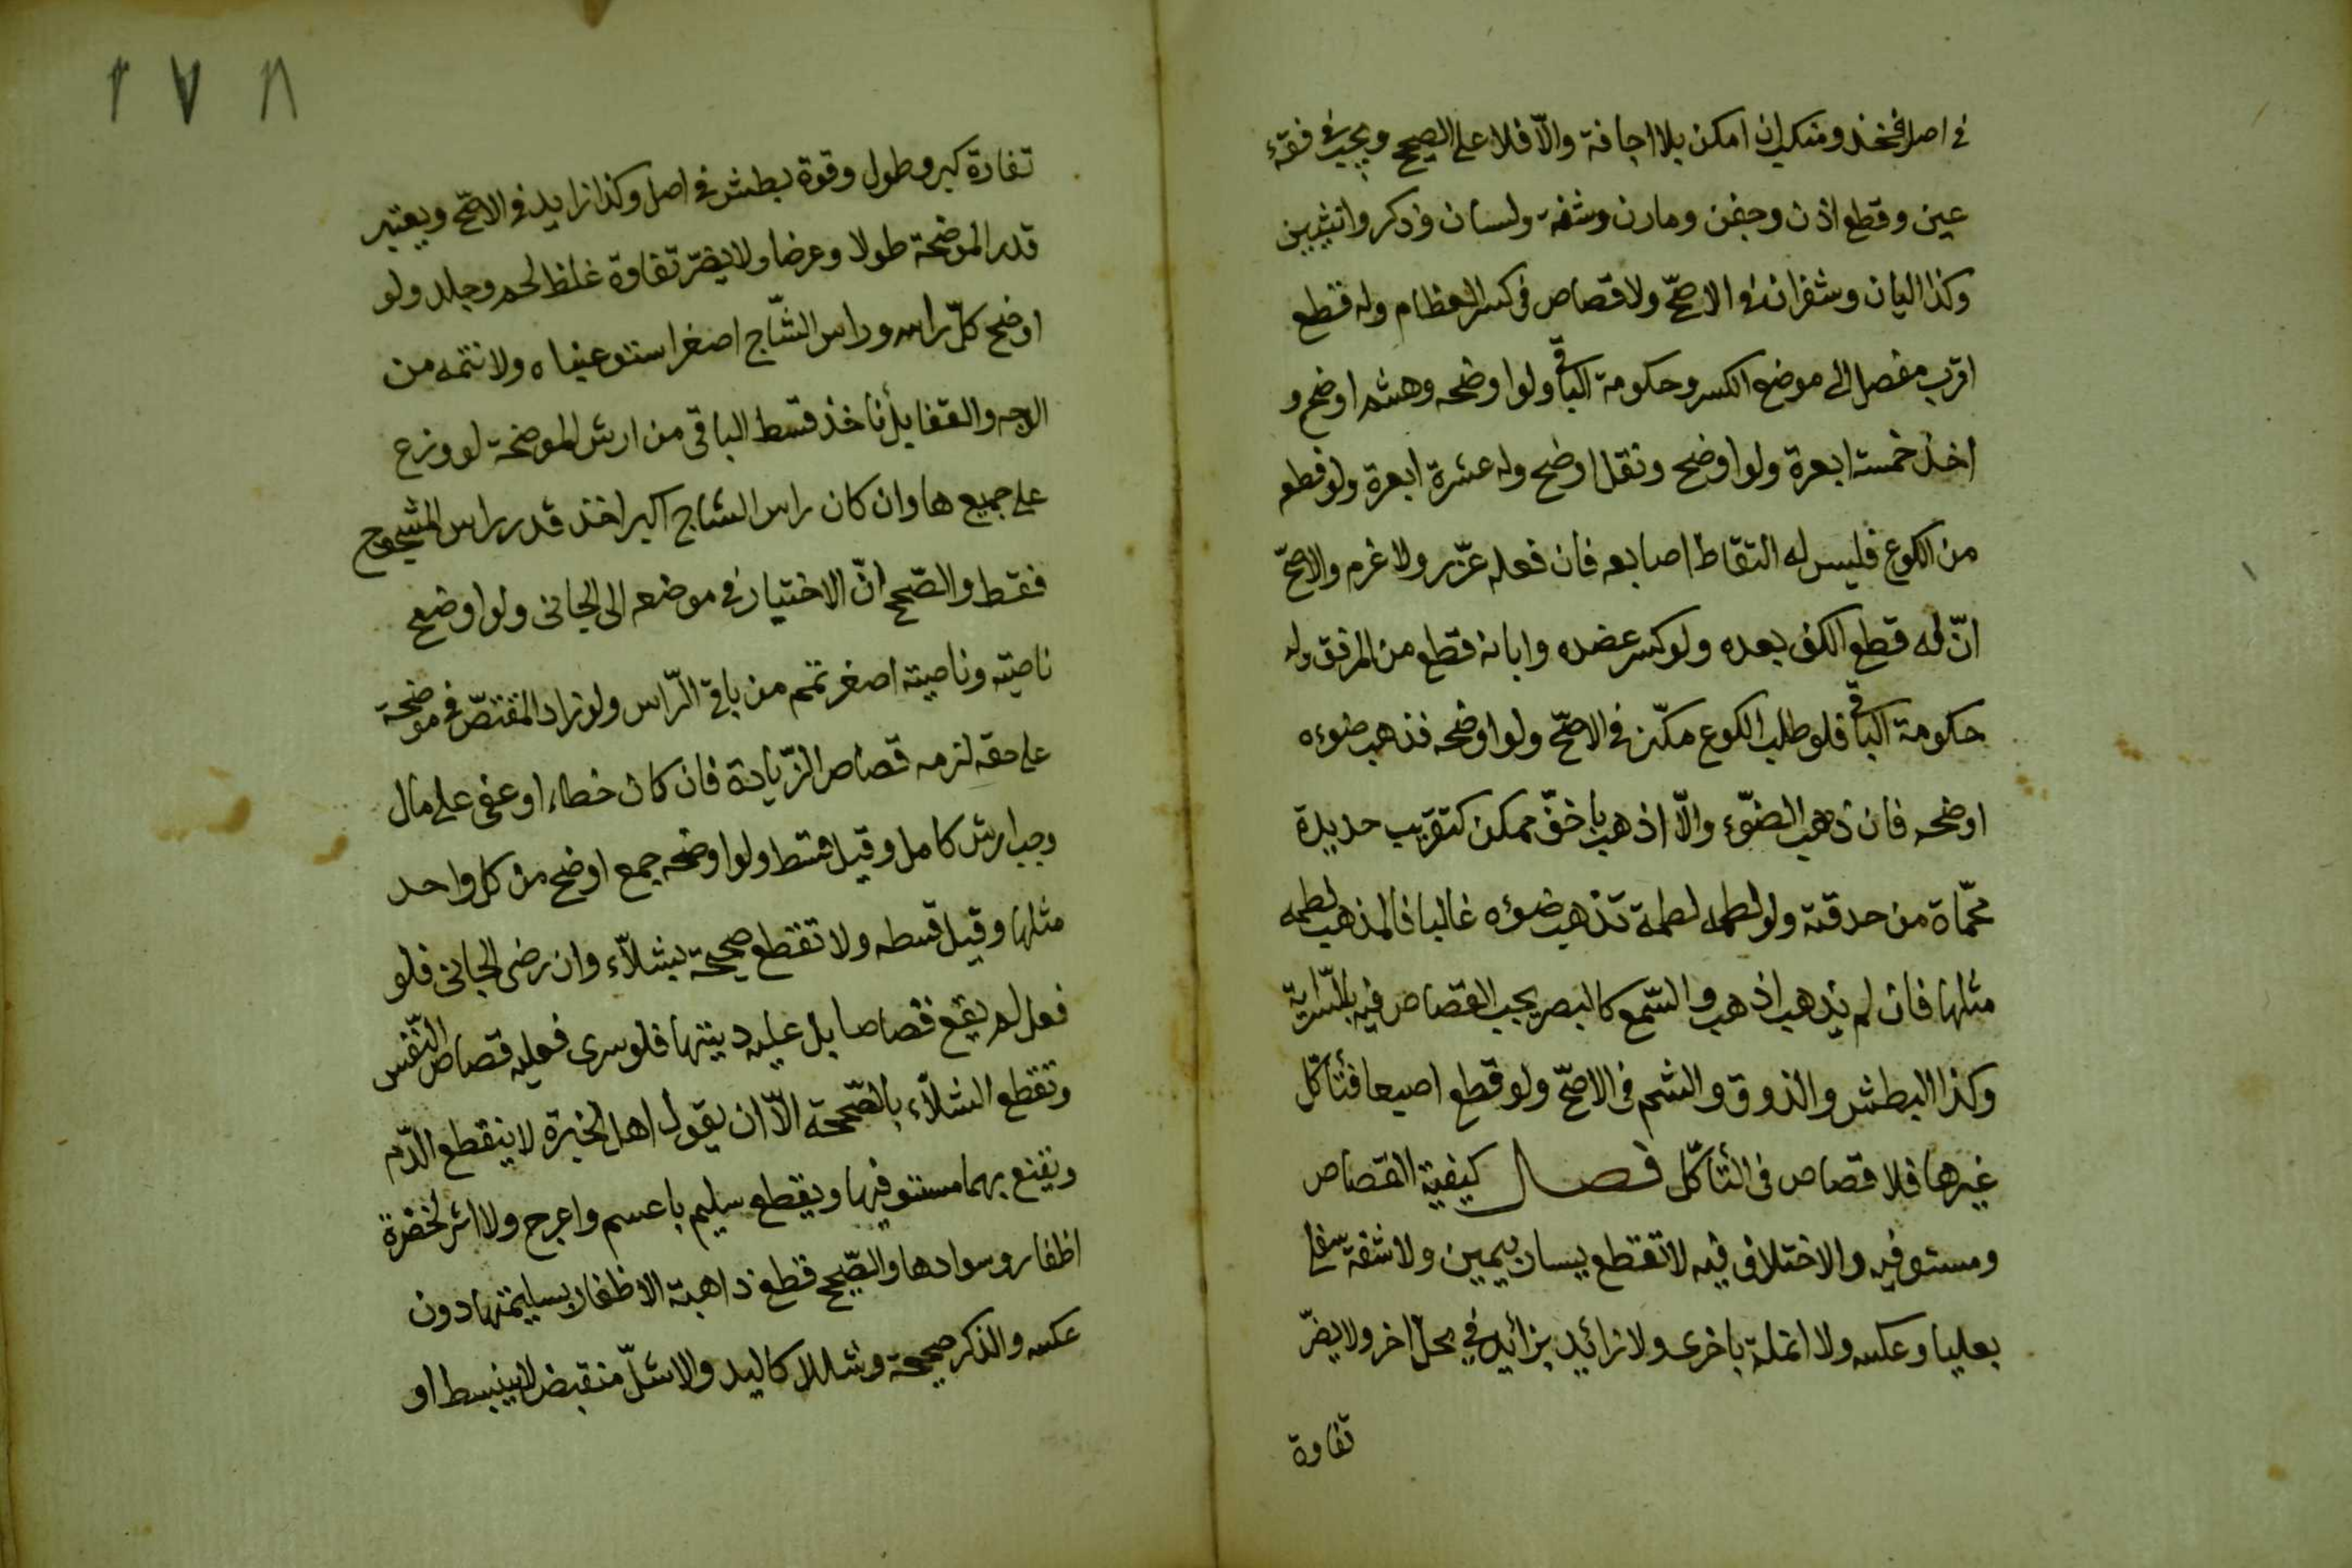 في اصل فخذ ومنكب ان امكن بلا اجافة والّا فلا على الصحيح ويجب في فقء
عين وقطع اذن وجفن ومارن وشفة ولسان وذكر وانثيين
وكذا اليان وشفران في الاصحّ ولا قصاص في كسر العظام وله قطع
اقرب مفصل الى موضع الكسر وحكومة الباقي ولو اوضحه وهشم اوضح و
اخذ خمسة ابعرة ولو اوضح ونقل اوضح وله عشرة ابعرة ولو قطع
من الكوع فليس له التقاط اصابعه فان فعله عزّر ولا غرم والاصحّ
انّ له قطع الكف بعده ولو كسر عضده وابانه قطع من المرفق وله
حكومة الباقي فلو طلب الكوع مكّن في الاصحّ ولو اوضحه فذهب ضوءه
اوضحه فان ذهب الضوّء والّا اذهب باخفّ ممكن كتقريب حديدة
محمّاة من حدقته ولو لطمه لطمة تذهب ضوءه غالبا فالمذهب لطمه
مثلها فان لم يذهب اذهب والسّمع كالبصر يجب القصاص فيه بالسّراية
وكذا البطش والذوق والشم في الاصحّ ولو قطع اصبعا فتأكّل
غيرها فلا قصاص في التأكّل فصل كيفية القصاص
ومستوفيه والاختلاف فيه لا تقطع يسار بيمين ولا شفة سفلى
بعليا وعكسه ولا انملة باخرى ولا زائد بزائد في محلّ اخر ولا يضرّ
تفاوة
٢٧٨
تفاوة كبر وطول وقوة بطش في اصل وكذا زايد في الاصحّ ويعتبر
قدر الموضحة طولا وعرضا ولا يضرّ تفاوة غلظ لحم وجلد ولو
اوضح كلّ راسه وراس الشّاج اصغر استوعبناه ولا نتمه من
الوجه والقفا بل ناخذ قسط الباقي من ارش الموضحة لو وزع
على جميعها وان كان راس الشاج اكبر اخذ قدر راس المشجوج
فقط والصّحيح انّ الاختيار في موضعه الى الجاني ولو اوضح
ناصيته وناصيته اصغر تمم من باقي الرّاس ولو زاد المقتصّ في موضحة
على حقه لزمه قصاص الزّيادة فان كان خطاء او عفى على مال
وجب ارش كامل وقيل قسط ولو اوضحه جمع اوضح من كل واحد
مثلها وقيل قسطه ولا تقطع صحيحة بشلاّء وان رضى الجاني فلو
فعل لم يقع قصاصا بل عليه ديتها فلو سرى فعليه قصاص النّفس
وتقطع الشلاّء بالصّحيحة الاّ ان يقول اهل الخبرة لا ينقطع الدّم
ويقنع بهما مستوفيها ويقطع سليم باعسم واعرج ولا اثر لخضرة
اظفار وسوادها والصّحيح قطع ذاهبة الاظفار بسليمتها دون
عكسه والذكر صحيحة وشللا كاليد والاشلّ منقبض لا ينبسط او